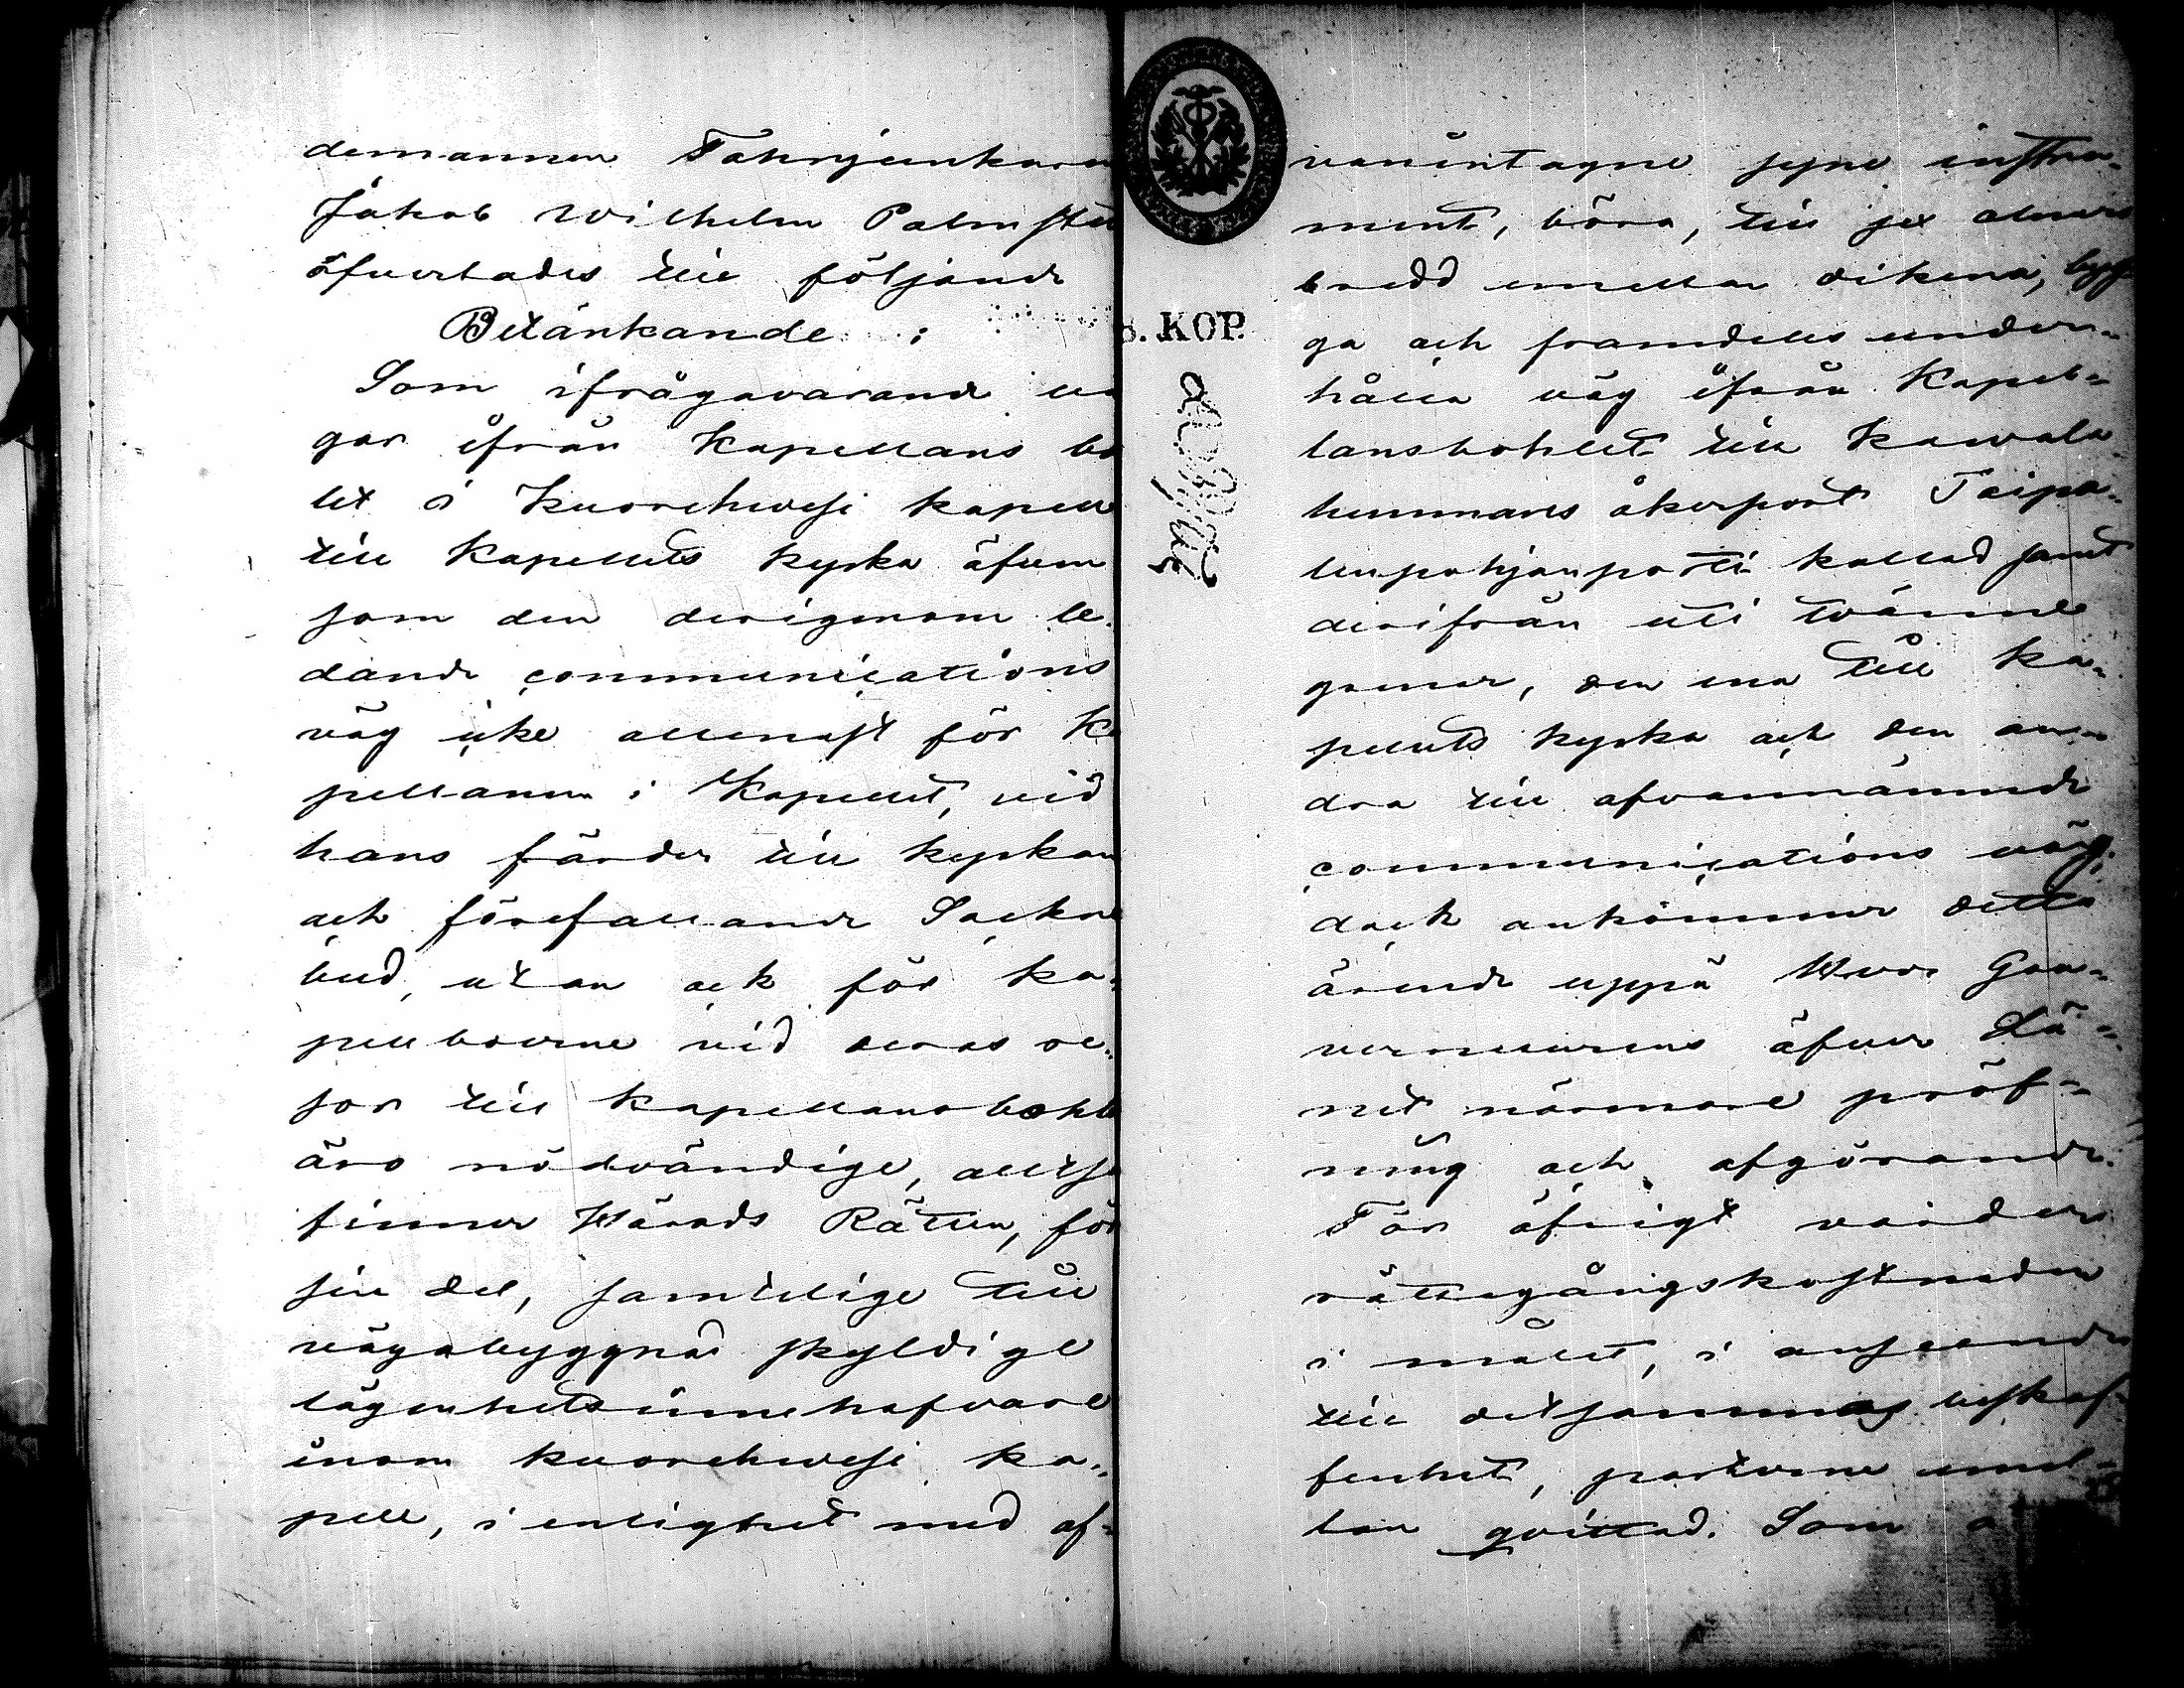 demannen Fahnjunkaren
Jakob Wilhelm Palmste
öfverlades till följande
Betänkande:
Som ifrågavarande vä
gar ifrån Kapellans bo
let i Kuorehwesi kapell
till Kapellets kyrka äfven
som den derigenom le-
dande communications
väg icke allenast för Ka
pellanen i Kapellet, vid
hans färder till kyrkan
och förefallande Sockne
bud, utan ock för ka-
pellboerne vid deras re-
sor till kapellansbohle
äro nödvändige, alltså
finner Härads Rätten, för
sin del, samtelige till
vägabyggnad skyldige
lägenhetsinnehafvare
inom Kuorehwesi ka-
pell, i enlighet med of-
vanintagne syne instru-
ment, böra, till sex alnars
bredd emellan dikena, byg-
ga och framdeles under-
hålla väg ifrån Kapel-
lansbohlet till Kawala
hemmans åkerport Taipa-
lenpohjanportti kallad samt
derifrån uti tvänne
grenar, den ena till ka-
pellets kyrka och den an-
dra till ofvannämnde
communications väg;
dock ankommer detta
ärende uppå Herr Gou-
verneurens öfver Lä-
net närmare pröf-
ning och afgörande.
För öfrigt varder
rättegångskostnaden
i målet, i anseende
till detsammas beskaf-
fenhet, parterne emel-
lan qvittad. Som
S. KOP.